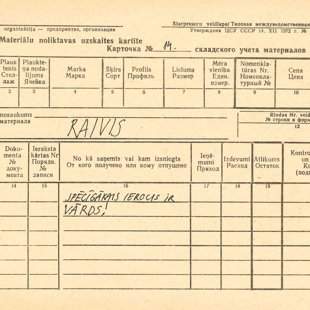 Starpresoru veidlapa/Типовая междуведомственная
организация — предприятие, организация
Утверждена ЦСУ СССР 14. XII 1972 г. №
Materiālu noliktavas uzskaites kartīte
Карточка № 14. складского учета материалов
Plaukts Стеллаж
Marka Марка
Šķira Сорт
Profils Профиль
Lielums Размер
Mēra vienība Един. измер.
Nomenklatūras Nr. Номенклатурный №
Cena Цена
2 3 4 5 6 7 8 9 10
nosaukums материала
RAIVIS
Rindas Nr. № строки
12
Dokumenta № документа
Ieraksta kārtas Nr. Порядк. № записи
No kā saņemts vai kam izsniegts
От кого получено или кому отпущено
Ieņēmumi Приход
Izdevumi Расход
Atlikums Остаток
14 15 16 17 18 19
SPĒCĪGĀKAIS IEROCIS IR
VĀRDS,